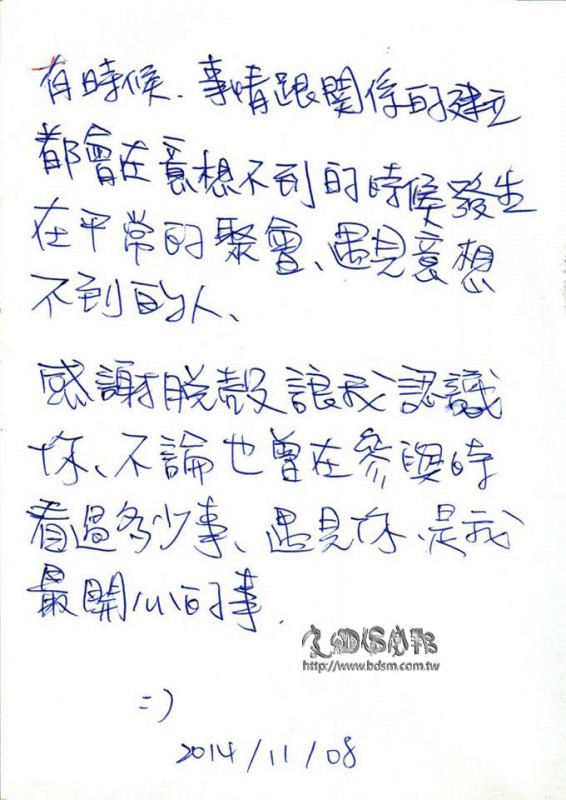 有時候、事情跟關係的建立
都會在意想不到的時候發生
在平常的聚會、遇見意想
不到的人、
感謝脫殼讓我認識
你、不論也曾在參與時
看過多少事、遇見你、是我
最開心的事
http://www.bdsm.com.tw
=)
2014/11/08